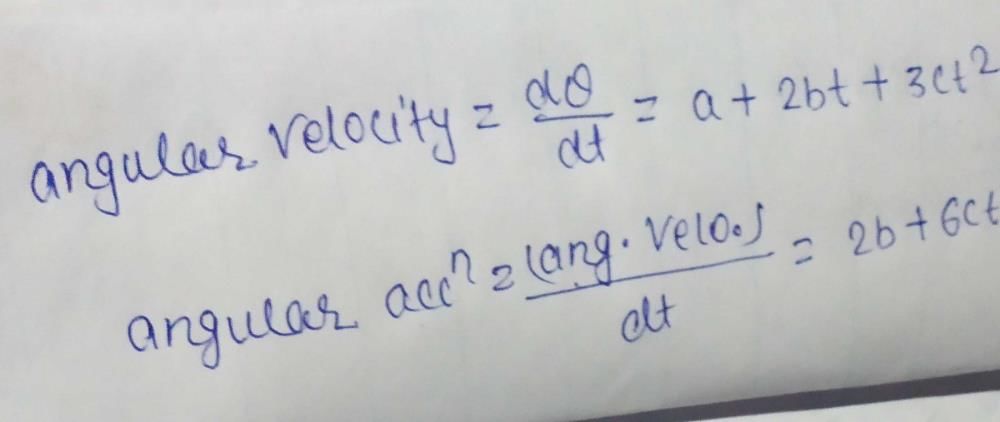 angular velocity = dθ/dt = a + 2bt + 3ct²
angular accⁿ = (ang. velo.)/dt = 2b + 6ct